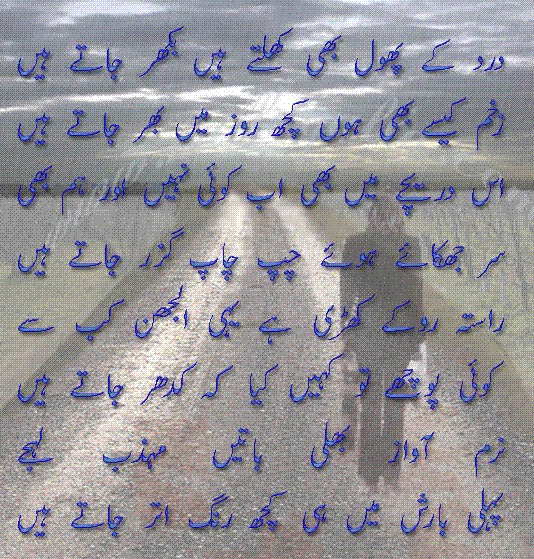 درد کے پھول بھی کھلتے ہیں بکھر جاتے ہیں
زخم کیسے بھی ہوں کچھ روز میں بھر جاتے ہیں
اس دریچے میں بھی اب کوئی نہیں اور ہم بھی
سر جھکائے ہوئے چپ چاپ گزر جاتے ہیں
راستہ روکے کھڑی ہے یہی الجھن کب سے
کوئی پوچھے تو کہیں کیا کہ کدھر جاتے ہیں
نرم آواز بھلی باتیں مہذب لہجے
پہلی بارش میں ہی کچھ رنگ اتر جاتے ہیں